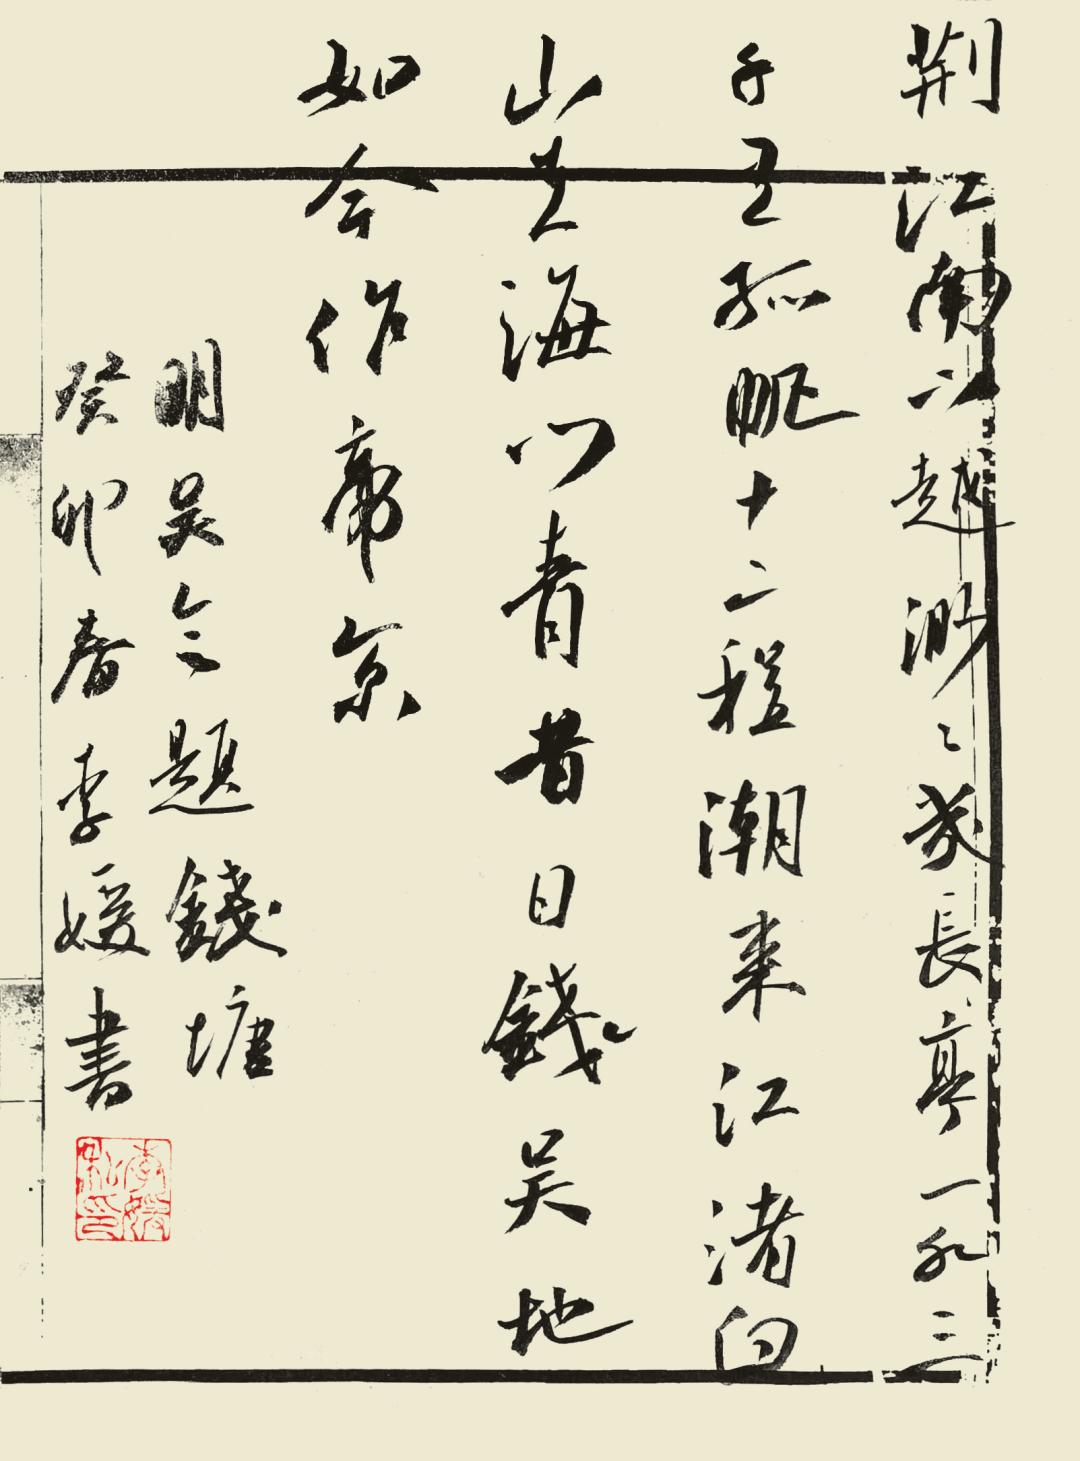 荆江南下越渺々幾長亭一水三
千里孤帆十二程潮来江渚白
山尽海门青昔日錢吴地
如今作帝京
明吴 題錢塘
癸卯春李媛書
李媛私印